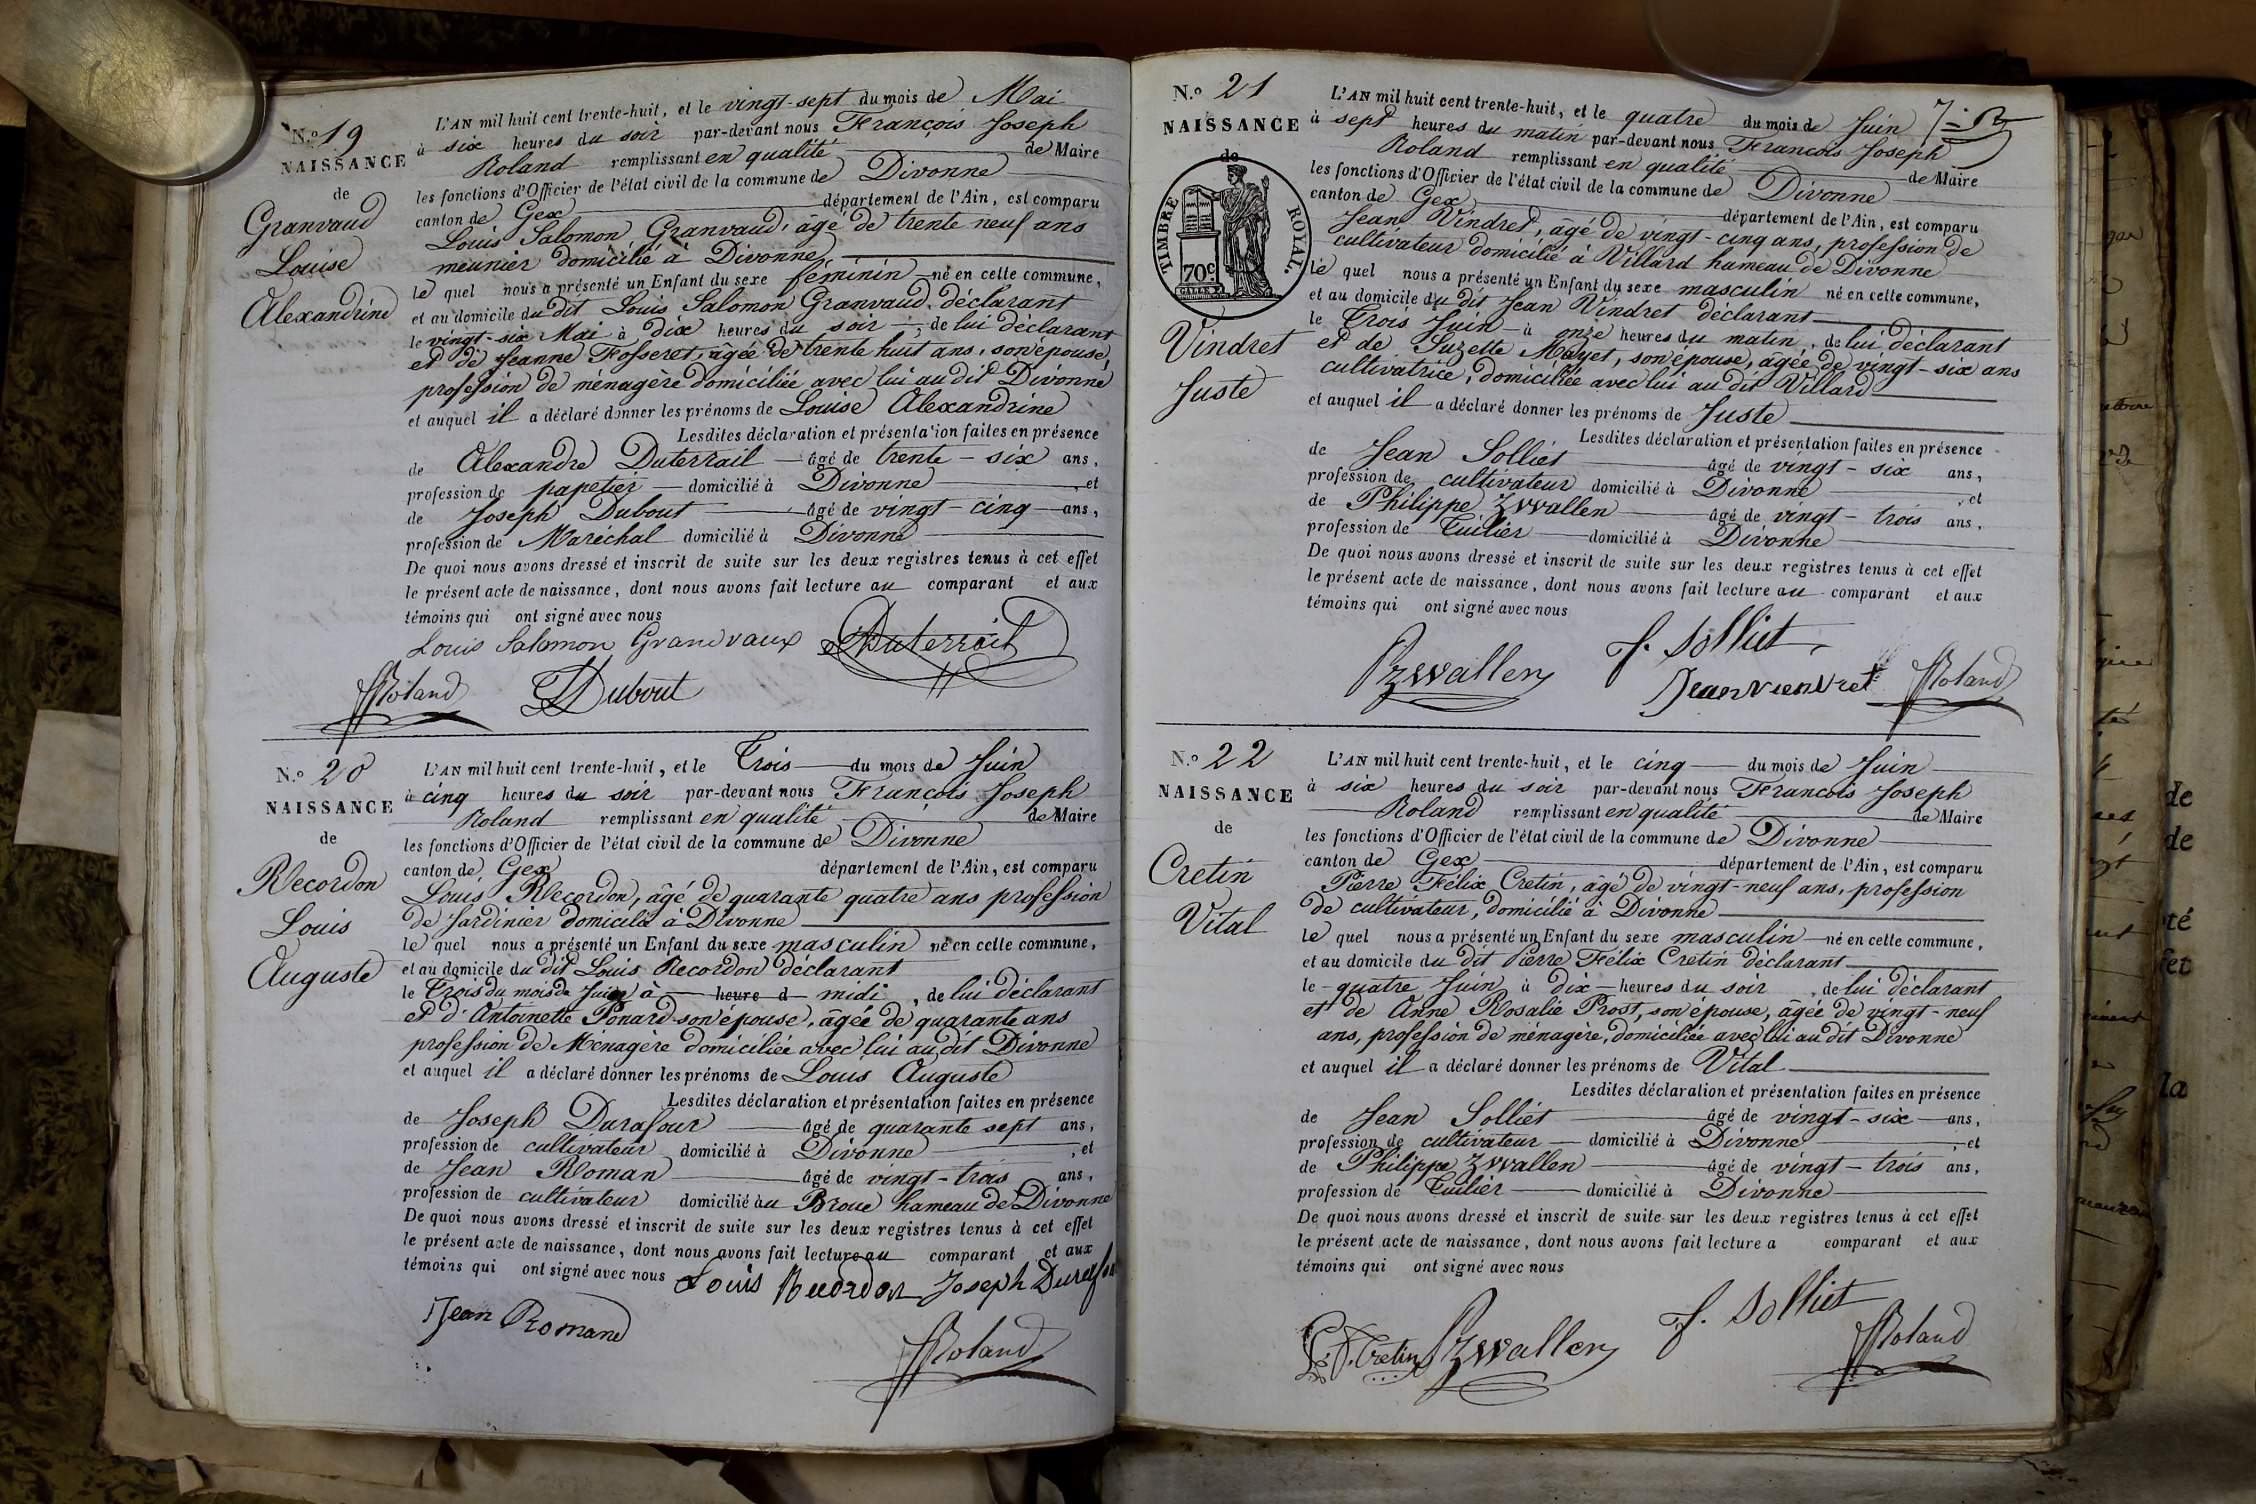 N.o 19
NAISSANCE
de
Granvaud
Louise
Alexandrine
L'AN mil huit cent trente-huit, et le vingt-sept du mois de Mai
à six heures du soir par-devant nous François Joseph
Roland remplissant en qualité de Maire
les fonctions d'Officier de l'état civil de la commune de Divonne
canton de Gex département de l'Ain, est comparu
Louis Salomon Granvaud, âgé de trente neuf ans
meunier domicilié à Divonne
le quel nous a présenté un Enfant du sexe féminin né en cette commune,
et au domicile du dit Louis Salomon Granvaud déclarant
le vingt-six Mai à dix heures du soir, de lui déclarant
et de Jeanne Fosseret, âgée de trente huit ans, son épouse,
profession de ménagère domiciliée avec lui au dit Divonne
et auquel il a déclaré donner les prénoms de Louise Alexandrine
Lesdites déclaration et présentation faites en présence
de Alexandre Duterrail âgé de trente-six ans,
profession de papetier domicilié à Divonne, et
de Joseph Dubout âgé de vingt-cinq ans,
profession de Maréchal domicilié à Divonne
De quoi nous avons dressé et inscrit de suite sur les deux registres tenus à cet effet
le présent acte de naissance, dont nous avons fait lecture au comparant et aux
témoins qui ont signé avec nous
Louis Salomon Grandvaux Duterrait
Roland Dubout
N.o 20
NAISSANCE
de
Recordon
Louis
Auguste
L'AN mil huit cent trente-huit, et le Trois du mois de Juin
à cinq heures du soir par-devant nous François Joseph
Roland remplissant en qualité de Maire
les fonctions d'Officier de l'état civil de la commune de Divonne
canton de Gex département de l'Ain, est comparu
Louis Recordon, âgé de quarante quatre ans profession
de Jardinier domicilié à Divonne
le quel nous a présenté un Enfant du sexe masculin né en cette commune,
et au domicile du dit Louis Recordon déclarant
le Trois du mois de Juin à heure d midi, de lui déclarant
et d'Antoinette Ponard son épouse, âgée de quarante ans
profession de Ménagère domiciliée avec lui au dit Divonne
et auquel il a déclaré donner les prénoms de Louis Auguste
Lesdites déclaration et présentation faites en présence
de Joseph Durafour âgé de quarante sept ans,
profession de cultivateur domicilié à Divonne, et
de Jean Roman âgé de vingt-trois ans,
profession de cultivateur domicilié au Broue hameau de Divonne
De quoi nous avons dressé et inscrit de suite sur les deux registres tenus à cet effet
le présent acte de naissance, dont nous avons fait lecture au comparant et aux
témoins qui ont signé avec nous Louis Recordon Joseph Durafour
Jean Romand
Roland
N.o 21
NAISSANCE
de
TIMBRE ROYAL.
70c.
Vindret
Juste
L'AN mil huit cent trente-huit, et le quatre du mois de Juin
à sept heures du matin par-devant nous François Joseph
Roland remplissant en qualité de Maire
les fonctions d'Officier de l'état civil de la commune de Divonne
canton de Gex département de l'Ain, est comparu
Jean Vindret, âgé de vingt-cinq ans, profession de
cultivateur domicilié à Villard hameau de Divonne
le quel nous a présenté un Enfant du sexe masculin né en cette commune,
et au domicile du dit Jean Vindret déclarant
le Trois Juin à onze heures du matin, de lui déclarant
et de Suzette Mayet, son épouse, âgée de vingt-six ans
cultivatrice, domiciliée avec lui au dit Villard
et auquel il a déclaré donner les prénoms de Juste
Lesdites déclaration et présentation faites en présence
de Jean Solliet âgé de vingt-six ans,
profession de cultivateur domicilié à Divonne, et
de Philippe Zwallen âgé de vingt-trois ans,
profession de Tuilier domicilié à Divonne
De quoi nous avons dressé et inscrit de suite sur les deux registres tenus à cet effet
le présent acte de naissance, dont nous avons fait lecture au comparant et aux
témoins qui ont signé avec nous
Pzwallen J. Solliet
Jean Viendret Roland
N.o 22
NAISSANCE
de
Cretin
Vital
L'AN mil huit cent trente-huit, et le cinq du mois de Juin
à six heures du soir par-devant nous François Joseph
Roland remplissant en qualité de Maire
les fonctions d'Officier de l'état civil de la commune de Divonne
canton de Gex département de l'Ain, est comparu
Pierre Félix Cretin, âgé de vingt-neuf ans, profession
de cultivateur, domicilié à Divonne
le quel nous a présenté un Enfant du sexe masculin né en cette commune,
et au domicile du dit Pierre Félix Cretin déclarant
le quatre Juin à dix heures du soir, de lui déclarant
et de Anne Rosalie Prost, son épouse, âgée de vingt-neuf
ans, profession de ménagère, domiciliée avec lui au dit Divonne
et auquel il a déclaré donner les prénoms de Vital
Lesdites déclaration et présentation faites en présence
de Jean Solliet âgé de vingt-six ans,
profession de cultivateur domicilié à Divonne, et
de Philippe Zwallen âgé de vingt-trois ans,
profession de Tuilier domicilié à Divonne
De quoi nous avons dressé et inscrit de suite sur les deux registres tenus à cet effet
le présent acte de naissance, dont nous avons fait lecture a comparant et aux
témoins qui ont signé avec nous
P. F. Cretin Pzwallen J. Solliet Roland